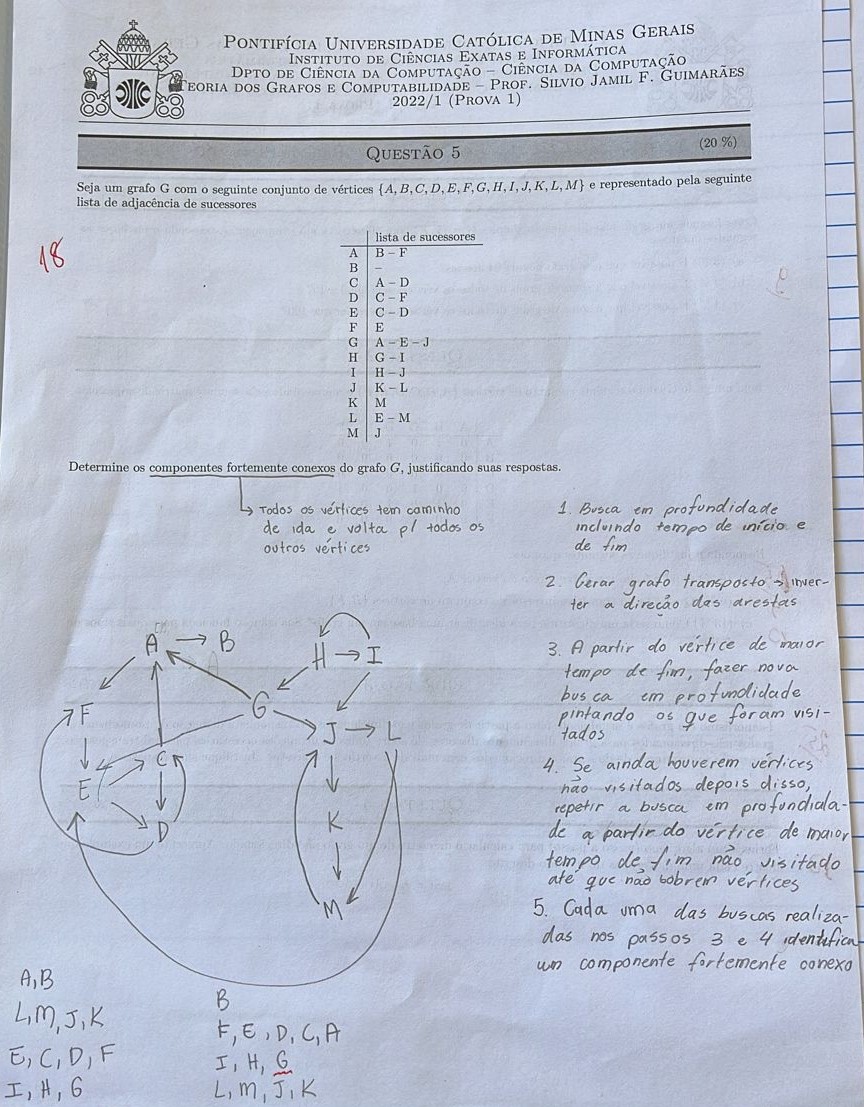 PONTIFÍCIA UNIVERSIDADE CATÓLICA DE MINAS GERAIS
INSTITUTO DE CIÊNCIAS EXATAS E INFORMÁTICA
DPTO DE CIÊNCIA DA COMPUTAÇÃO – CIÊNCIA DA COMPUTAÇÃO
TEORIA DOS GRAFOS E COMPUTABILIDADE – PROF. SILVIO JAMIL F. GUIMARÃES
2022/1 (PROVA 1)
QUESTÃO 5
(20 %)
Seja um grafo G com o seguinte conjunto de vértices {A, B, C, D, E, F, G, H, I, J, K, L, M} e representado pela seguinte
lista de adjacência de sucessores
18
lista de sucessores
A B – F
B –
C A – D
D C – F
E C – D
F E
G A – E – J
H G – I
I H – J
J K – L
K M
L E – M
M J
Determine os componentes fortemente conexos do grafo G, justificando suas respostas.
Todos os vértices tem caminho
de ida e volta p/ todos os
outros vértices
1. Busca em profundidade
incluindo tempo de início e
de fim
2. Gerar grafo transposto → inver-
ter a direção das arestas
3. A partir do vértice de maior
tempo de fim, fazer nova
busca em profundidade
pintando os que foram visi-
tados
4. Se ainda houverem vértices
não visitados depois disso,
repetir a busca em profundida-
de a partir do vértice de maior
tempo de fim não visitado
até que não sobrem vértices
5. Cada uma das buscas realiza-
das nos passos 3 e 4 identifica
um componente fortemente conexo
A → B
H → I
F
G
J → L
E
C
D
K
M
A, B
L, M, J, K
E, C, D, F
I, H, G
B
F, E, D, C, A
I, H, G
L, M, J, K